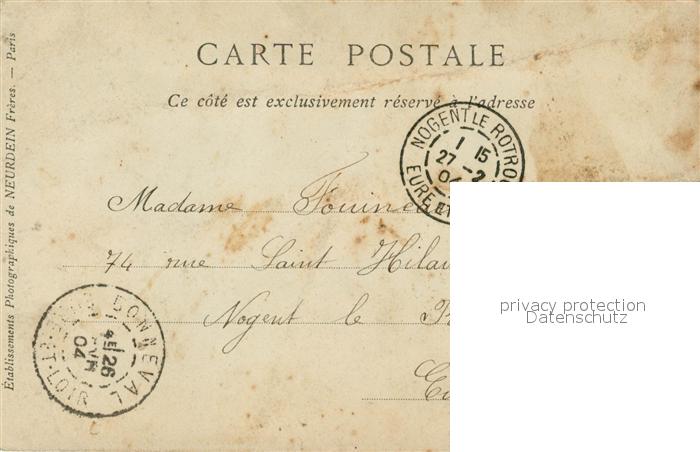 CARTE POSTALE
Ce côté est exclusivement réservé à l'adresse
NOGENT LE ROTRO
1 15
27 -2
04
EURE ET
Madame
74 rue Saint Hilai
Nogent le R
privacy protection
Datenschutz
BONNEVAL
4E
26
AVR
04
ET-LOIR
Établissements Photographiques de NEURDEIN Frères. — Paris